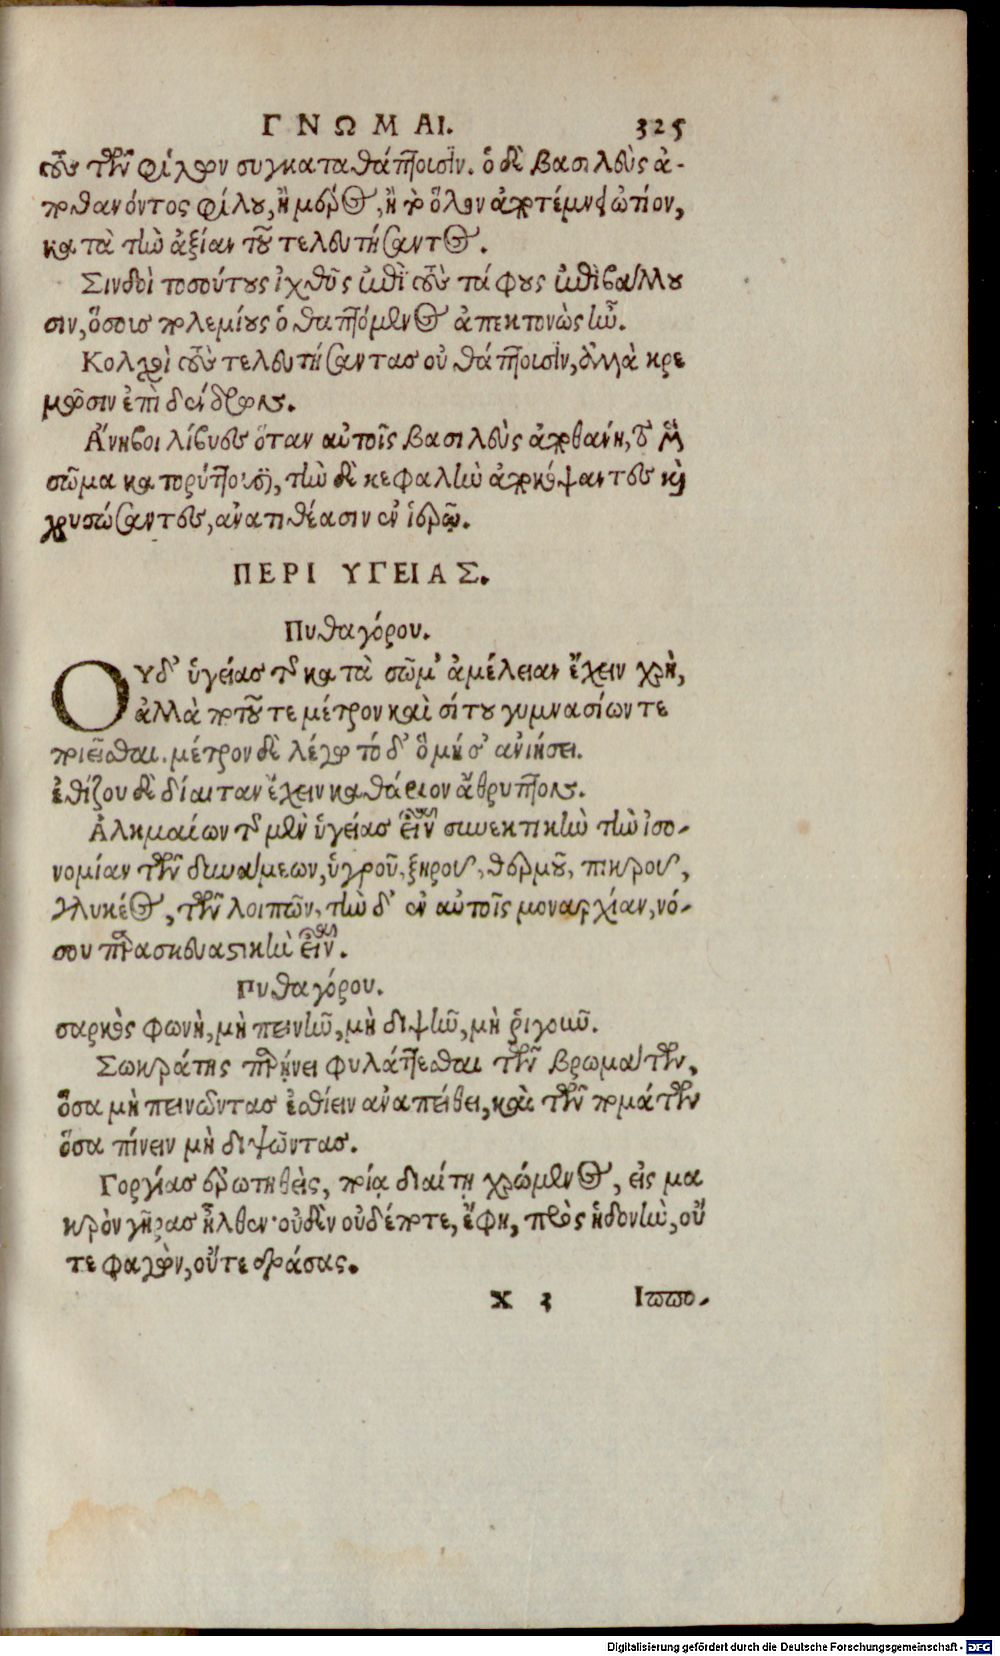 ΓΝΩΜΑΙ. 325
τοὺς τῶν φίλων συγκαταθάπτουσιν. ὁ δὲ βασιλεὺς ἀ-
ποθανόντος φίλου, ἢ μέρος, ἢ τὸ ὅλον ἀποτέμνει ὠτίον,
κατὰ τὴν ἀξίαν τοῦ τελευτήσαντος.
Σινδοὶ τοσούτους ἰχθῦς ἐπὶ τοὺς τάφους ἐπιβάλλου
σιν, ὅσους πολεμίους ὁ θαπτόμενος ἀπεκτονὼς ἦν.
Κολχοὶ τοὺς τελευτήσαντας οὐ θάπτουσιν, ἀλλὰ κρε
μῶσιν ἐπὶ δένδρων.
Ἄνηβοι λίβυες ὅταν αὐτοῖς βασιλεὺς ἀποθανῇ, τὸ μὲν
σῶμα κατορύττουσι, τὴν δὲ κεφαλὴν ἀποκόψαντες καὶ
χρυσώσαντες, ἀνατιθέασιν ἐν ἱερῷ.
ΠΕΡΙ ΥΓΕΙΑΣ.
Πυθαγόρου.
ΟΥδ' ὑγείας τῆς κατὰ σῶμ' ἀμέλειαν ἔχειν χρὴ,
ἀλλὰ ποτοῦ τε μέτρον καὶ σίτου γυμνασίων τε
ποιεῖσθαι. μέτρον δὲ λέγω τό δ' ὃ μή σ' ἀνιήσει.
ἐθίζου δὲ δίαιταν ἔχειν καθάριον ἄθρυπτον.
Ἀλκμαίων τῆς μὲν ὑγείας εἶναι συνεκτικὴν τὴν ἰσο-
νομίαν τῶν δυνάμεων, ὑγροῦ, ξηροῦ, θερμοῦ, πικροῦ,
γλυκέος, τῶν λοιπῶν, τὴν δ' ἐν αὐτοῖς μοναρχίαν, νό-
σου παρασκευαστικὴν εἶναι.
Πυθαγόρου.
σαρκὸς φωνὴ, μὴ πεινῆν, μὴ διψῆν, μὴ ῥιγοῦν.
Σωκράτης παρῄνει φυλάττεσθαι τῶν βρωμάτων,
ὅσα μὴ πεινῶντας ἐσθίειν ἀναπείθει, καὶ τῶν πομάτων
ὅσα πίνειν μὴ διψῶντας.
Γοργίας ἐρωτηθεὶς, ποίᾳ διαίτῃ χρώμενος, εἰς μα
κρὸν γῆρας ἦλθεν· οὐδὲν οὐδέποτε, ἔφη, πρὸς ἡδονὴν, οὔ
τε φαγὼν, οὔτε δράσας.
X 3 Ιππο-
Digitalisierung gefördert durch die Deutsche Forschungsgemeinschaft - DFG